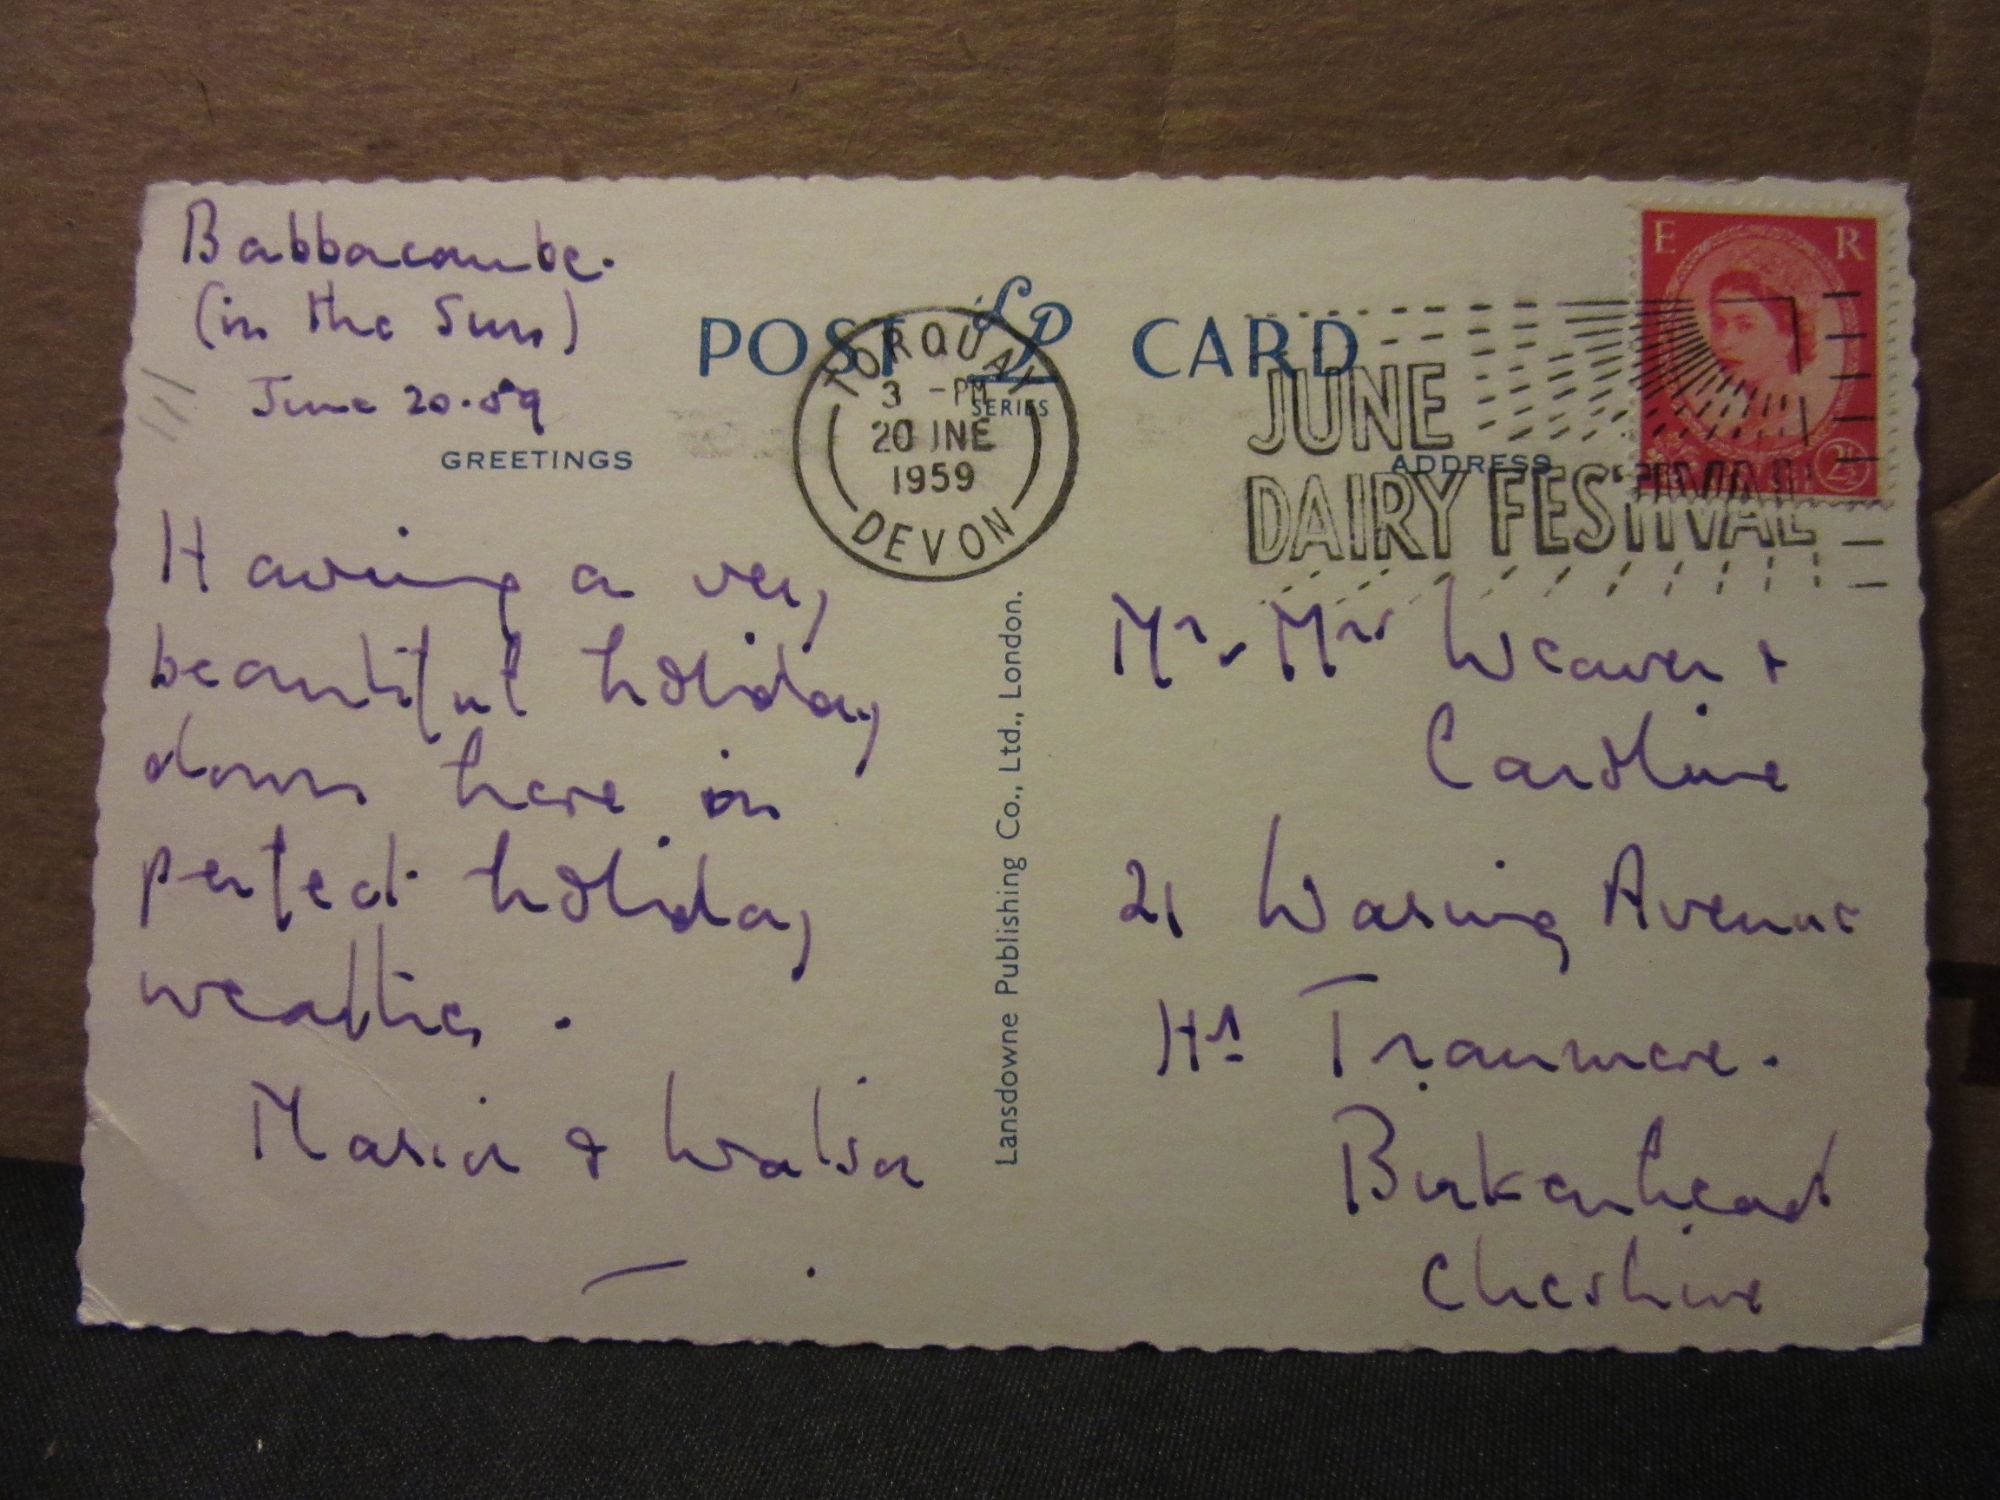 Babbacombe.
(in the Sun)
June 20.59
GREETINGS
Having a very
beautiful holiday
down here in
perfect holiday
weather.
Maria &
POST CARD
LP
SERIES
TORQUAY
3 - PM
20 JNE
1959
DEVON
Lansdowne Publishing Co., Ltd., London.
E R
2½
JUNE
DAIRY FESTIVAL
ADDRESS
Mr & Mrs Weaver &
Caroline
21 Waring Avenue
Hr Tranmere.
Birkenhead
Cheshire